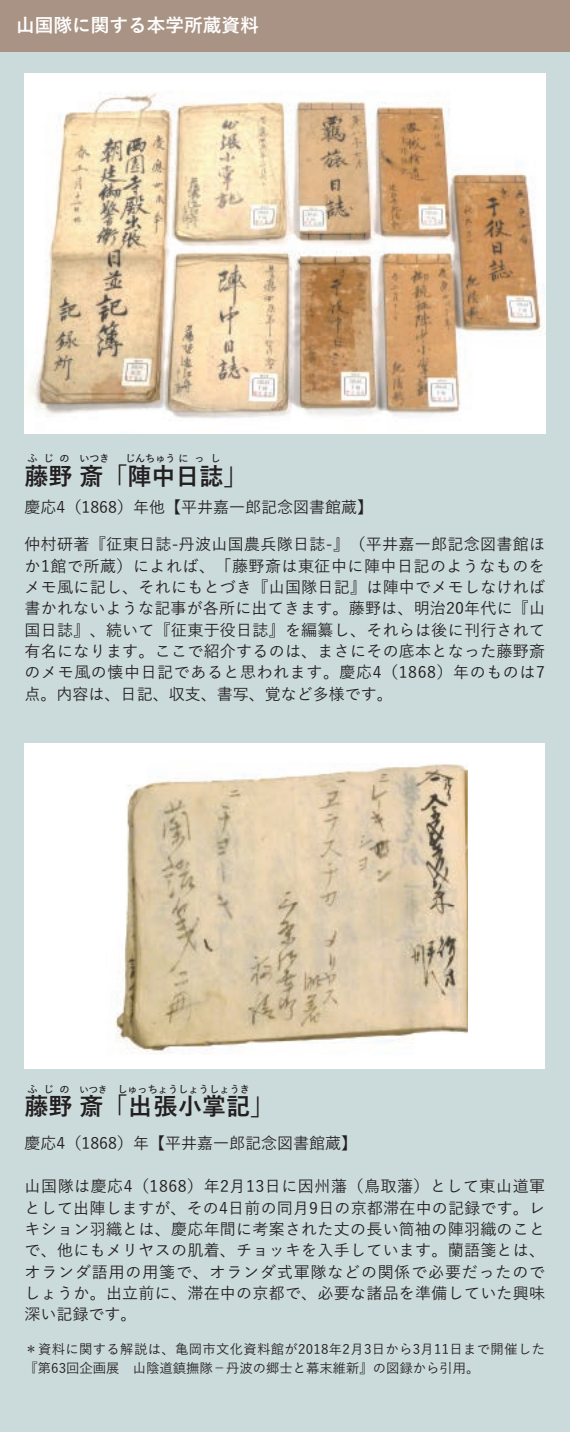 山国隊に関する本学所蔵資料
慶應四戊辰年
西園寺殿出張
朝廷御警衛日並記簿
記録所
出張小掌記
羈旅日誌
陣中日誌
干役日誌
ふじの いつき じんちゅうにっし
藤野 斎「陣中日誌」
慶応4（1868）年他【平井嘉一郎記念図書館蔵】
仲村研著『征東日誌-丹波山国農兵隊日誌-』（平井嘉一郎記念図書館ほ
か1館で所蔵）によれば、「藤野斎は東征中に陣中日記のようなものを
メモ風に記し、それにもとづき『山国隊日記』は陣中でメモしなければ
書かれないような記事が各所に出てきます。藤野は、明治20年代に『山
国日誌』、続いて『征東于役日誌』を編纂し、それらは後に刊行されて
有名になります。ここで紹介するのは、まさにその底本となった藤野斎
のメモ風の懐中日記であると思われます。慶応4（1868）年のものは7
点。内容は、日記、収支、書写、覚など多様です。
一ヱラステカ
メリヤス
肌着
ニチヨーキ
蘭語箋 二冊
ふじの いつき しゅっちょうしょうしょうき
藤野 斎「出張小掌記」
慶応4（1868）年【平井嘉一郎記念図書館蔵】
山国隊は慶応4（1868）年2月13日に因州藩（鳥取藩）として東山道軍
として出陣しますが、その4日前の同月9日の京都滞在中の記録です。レ
キション羽織とは、慶応年間に考案された丈の長い筒袖の陣羽織のこと
で、他にもメリヤスの肌着、チョッキを入手しています。蘭語箋とは、
オランダ語用の用箋で、オランダ式軍隊などの関係で必要だったので
しょうか。出立前に、滞在中の京都で、必要な諸品を準備していた興味
深い記録です。
＊資料に関する解説は、亀岡市文化資料館が2018年2月3日から3月11日まで開催した
『第63回企画展　山陰道鎮撫隊－丹波の郷士と幕末維新』の図録から引用。